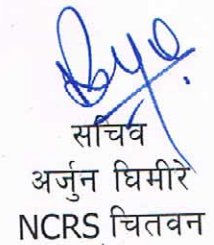 सचिव
अर्जुन घिमीरे
NCRS चितवन